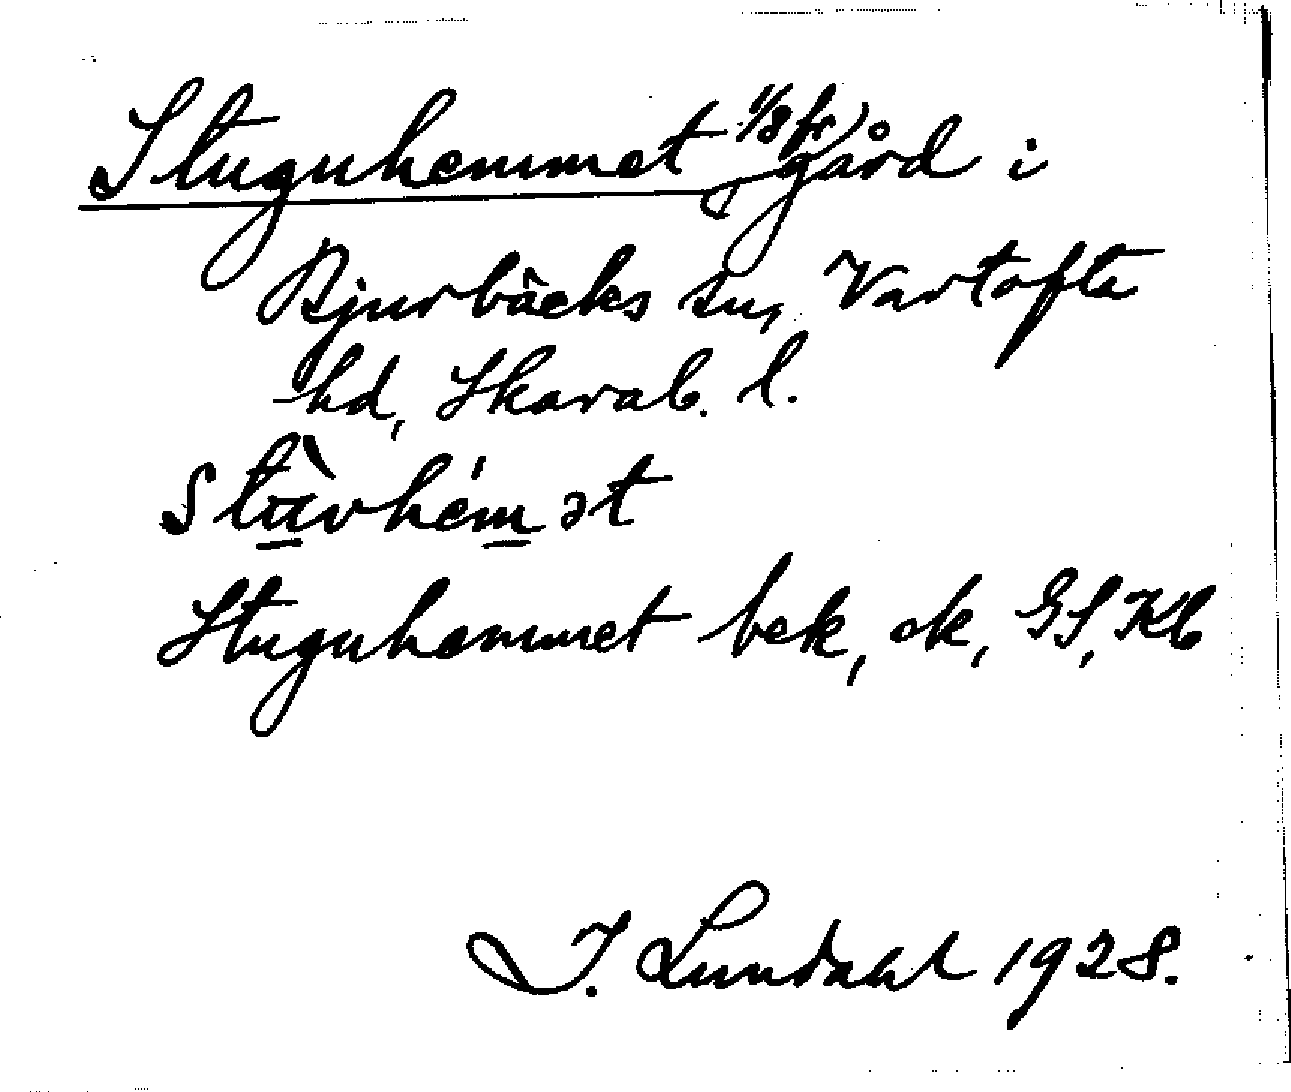 Stuguhemmet, 1/8 fr) gård i
Bjurbäcks sn, Vartofta
hd, Skarab. l.
Stùvhémət
Stuguhemmet bek, ek, GS, Kb
I. Lundahl 1928.